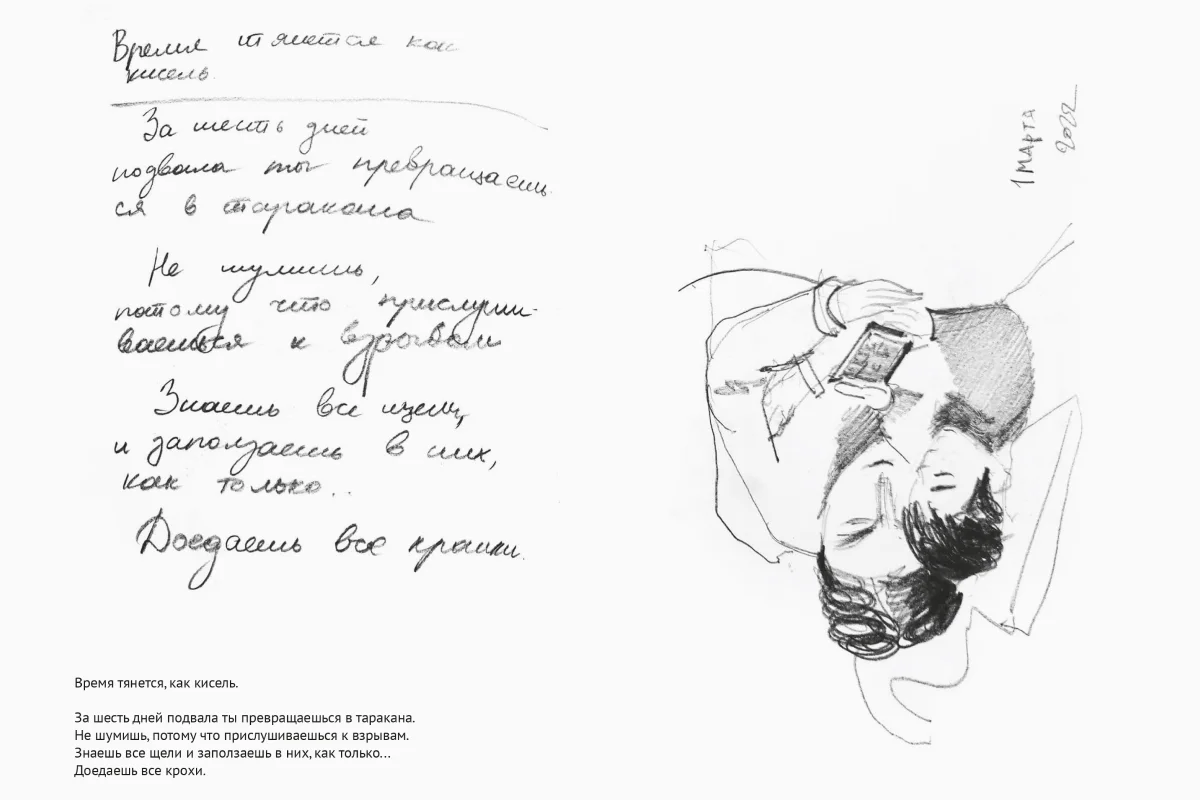 Время тянется как
кисель.
За шесть дней
подвала ты превращаешь-
ся в таракана
Не шумишь,
потому что прислуши-
ваешься к взрывам
Знаешь все щели,
и заползаешь в них,
как только..
Доедаешь все крошки.
1 МАРТА
2022
Время тянется, как кисель.
За шесть дней подвала ты превращаешься в таракана.
Не шумишь, потому что прислушиваешься к взрывам.
Знаешь все щели и заползаешь в них, как только...
Доедаешь все крохи.